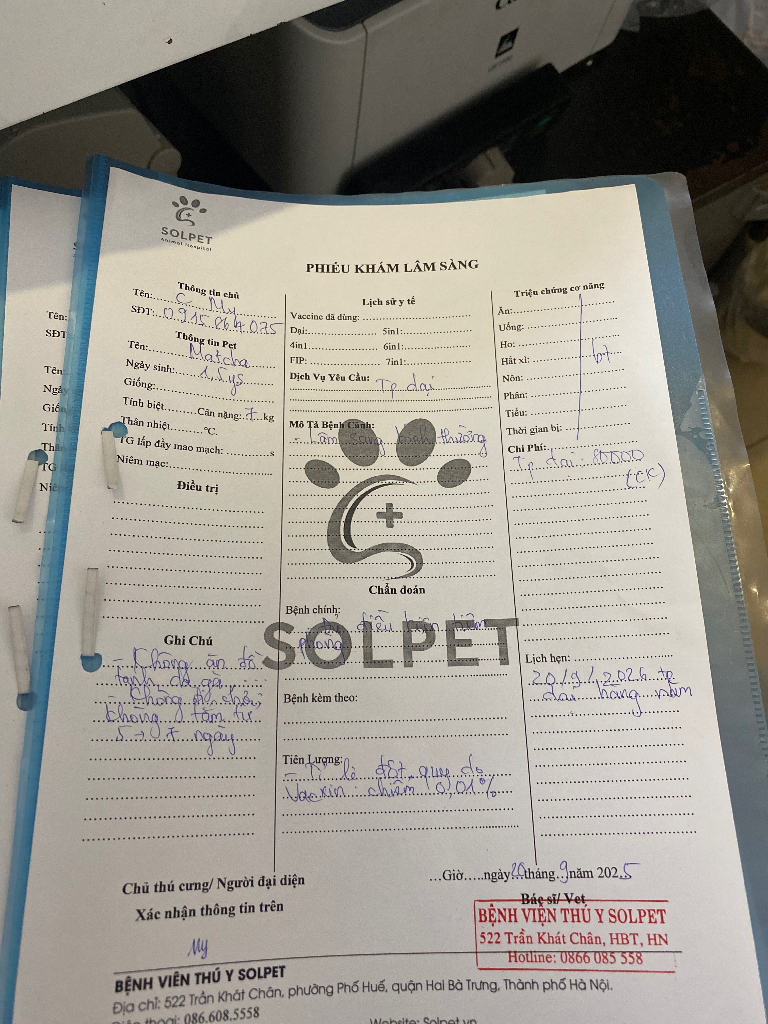 SOLPET
Animal Hospital
PHIẾU KHÁM LÂM SÀNG
Thông tin chủ
Tên: C My
SĐT: 0915.064.075
Thông tin Pet
Tên: Matcha
Ngày sinh: 1,5ys
Giống:
Tính biệt Cân nặng: 7 kg
Thân nhiệt °C.
TG lấp đầy mao mạch: s
Niêm mạc:
Điều trị
Ghi Chú
- Không ăn đồ
tanh da gà
- Không
không tắm từ
5 → 7 ngày
Lịch sử y tế
Vaccine đã dùng:
Dại: 5in1:
4in1 6in1:
FIP: 7in1:
Dịch Vụ Yêu Cầu: Tp dại
Mô Tả Bệnh Cảnh:
- Lâm sàng bình thường
SOLPET
Chẩn đoán
Bệnh chính:
Đủ điều kiện tiêm
phòng
Bệnh kèm theo:
Tiên Lượng:
- Tỉ lệ đột quỵ do
Vacxin chiếm 0,01%
Triệu chứng cơ năng
Ăn:
Uống:
Ho:
Hắt xì: bt
Nôn:
Phân:
Tiểu:
Thời gian bị:
Chi Phí:
Tp dại: 80000
(CK)
Lịch hẹn:
20/9/2026 tp
dại hàng năm
Chủ thú cưng/ Người đại diện
Xác nhận thông tin trên
My
...Giờ.....ngày 20 tháng 9 năm 2025
Bác sĩ/ Vet
BỆNH VIỆN THÚ Y SOLPET
522 Trần Khát Chân, HBT, HN
Hotline: 0866 085 558
BỆNH VIỆN THÚ Y SOLPET
Địa chỉ: 522 Trần Khát Chân, phường Phố Huế, quận Hai Bà Trưng, Thành phố Hà Nội.
Điện thoại: 086.608.5558
Website: Solpet.vn